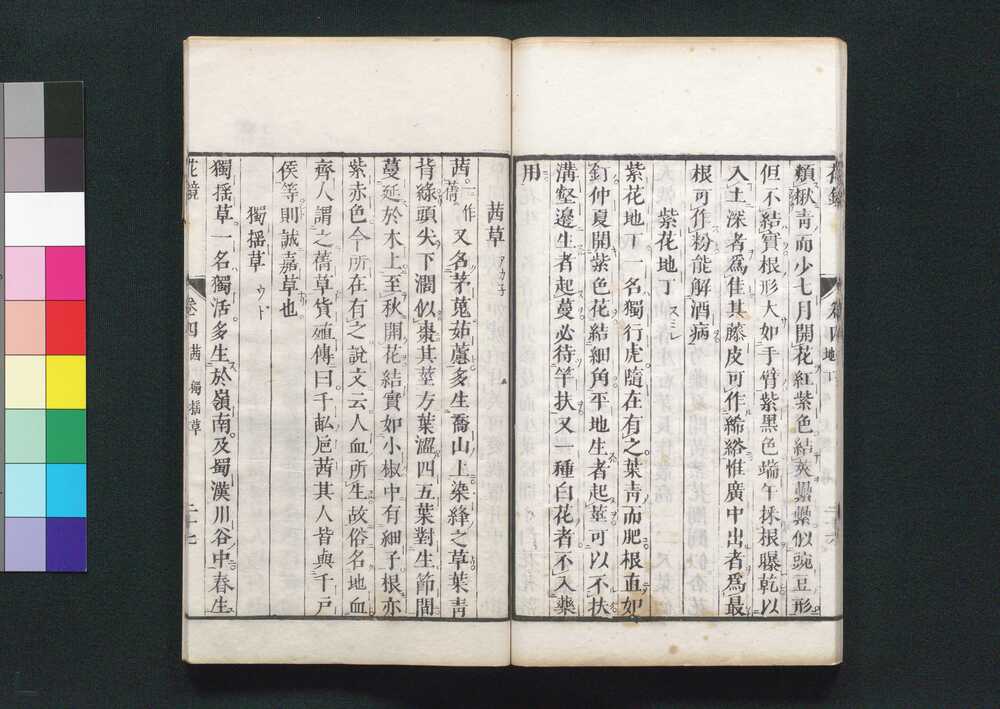 花鏡
卷四
頖楸青而少七月開花紅紫色結莢纍纍似豌豆形
但不結實根形大如手臂紫黑色端午採根曝乾以
入土深者爲佳其藤皮可作絺綌惟廣中出者爲最
根可作粉能解酒病
紫花地丁 スミレ
紫花地丁一名獨行虎隨在有之葉青而肥根直如
釘仲夏開紫色花結細角平地生者起莖可以不扶
溝壑邊生者起蔓必待竿扶又一種白花者不入藥
用
茜草 アカ子
茜一作蒨又名茅蒐茹藘多生喬山上染絳之草葉青
背綠頭尖下濶似棗其莖方葉澀四五葉對生節間
蔓延於木上至秋開花結實如小椒中有細子根亦
紫赤色今所在有之說文云人血所生故俗名地血
齊人謂之蒨草貨殖傳曰千畝巵茜其人皆與千戸
侯等則誠嘉草也
獨搖草 ウド
獨搖草一名獨活多生於嶺南及蜀漢川谷中春生
花鏡
卷四 茜 獨搖草
二十七